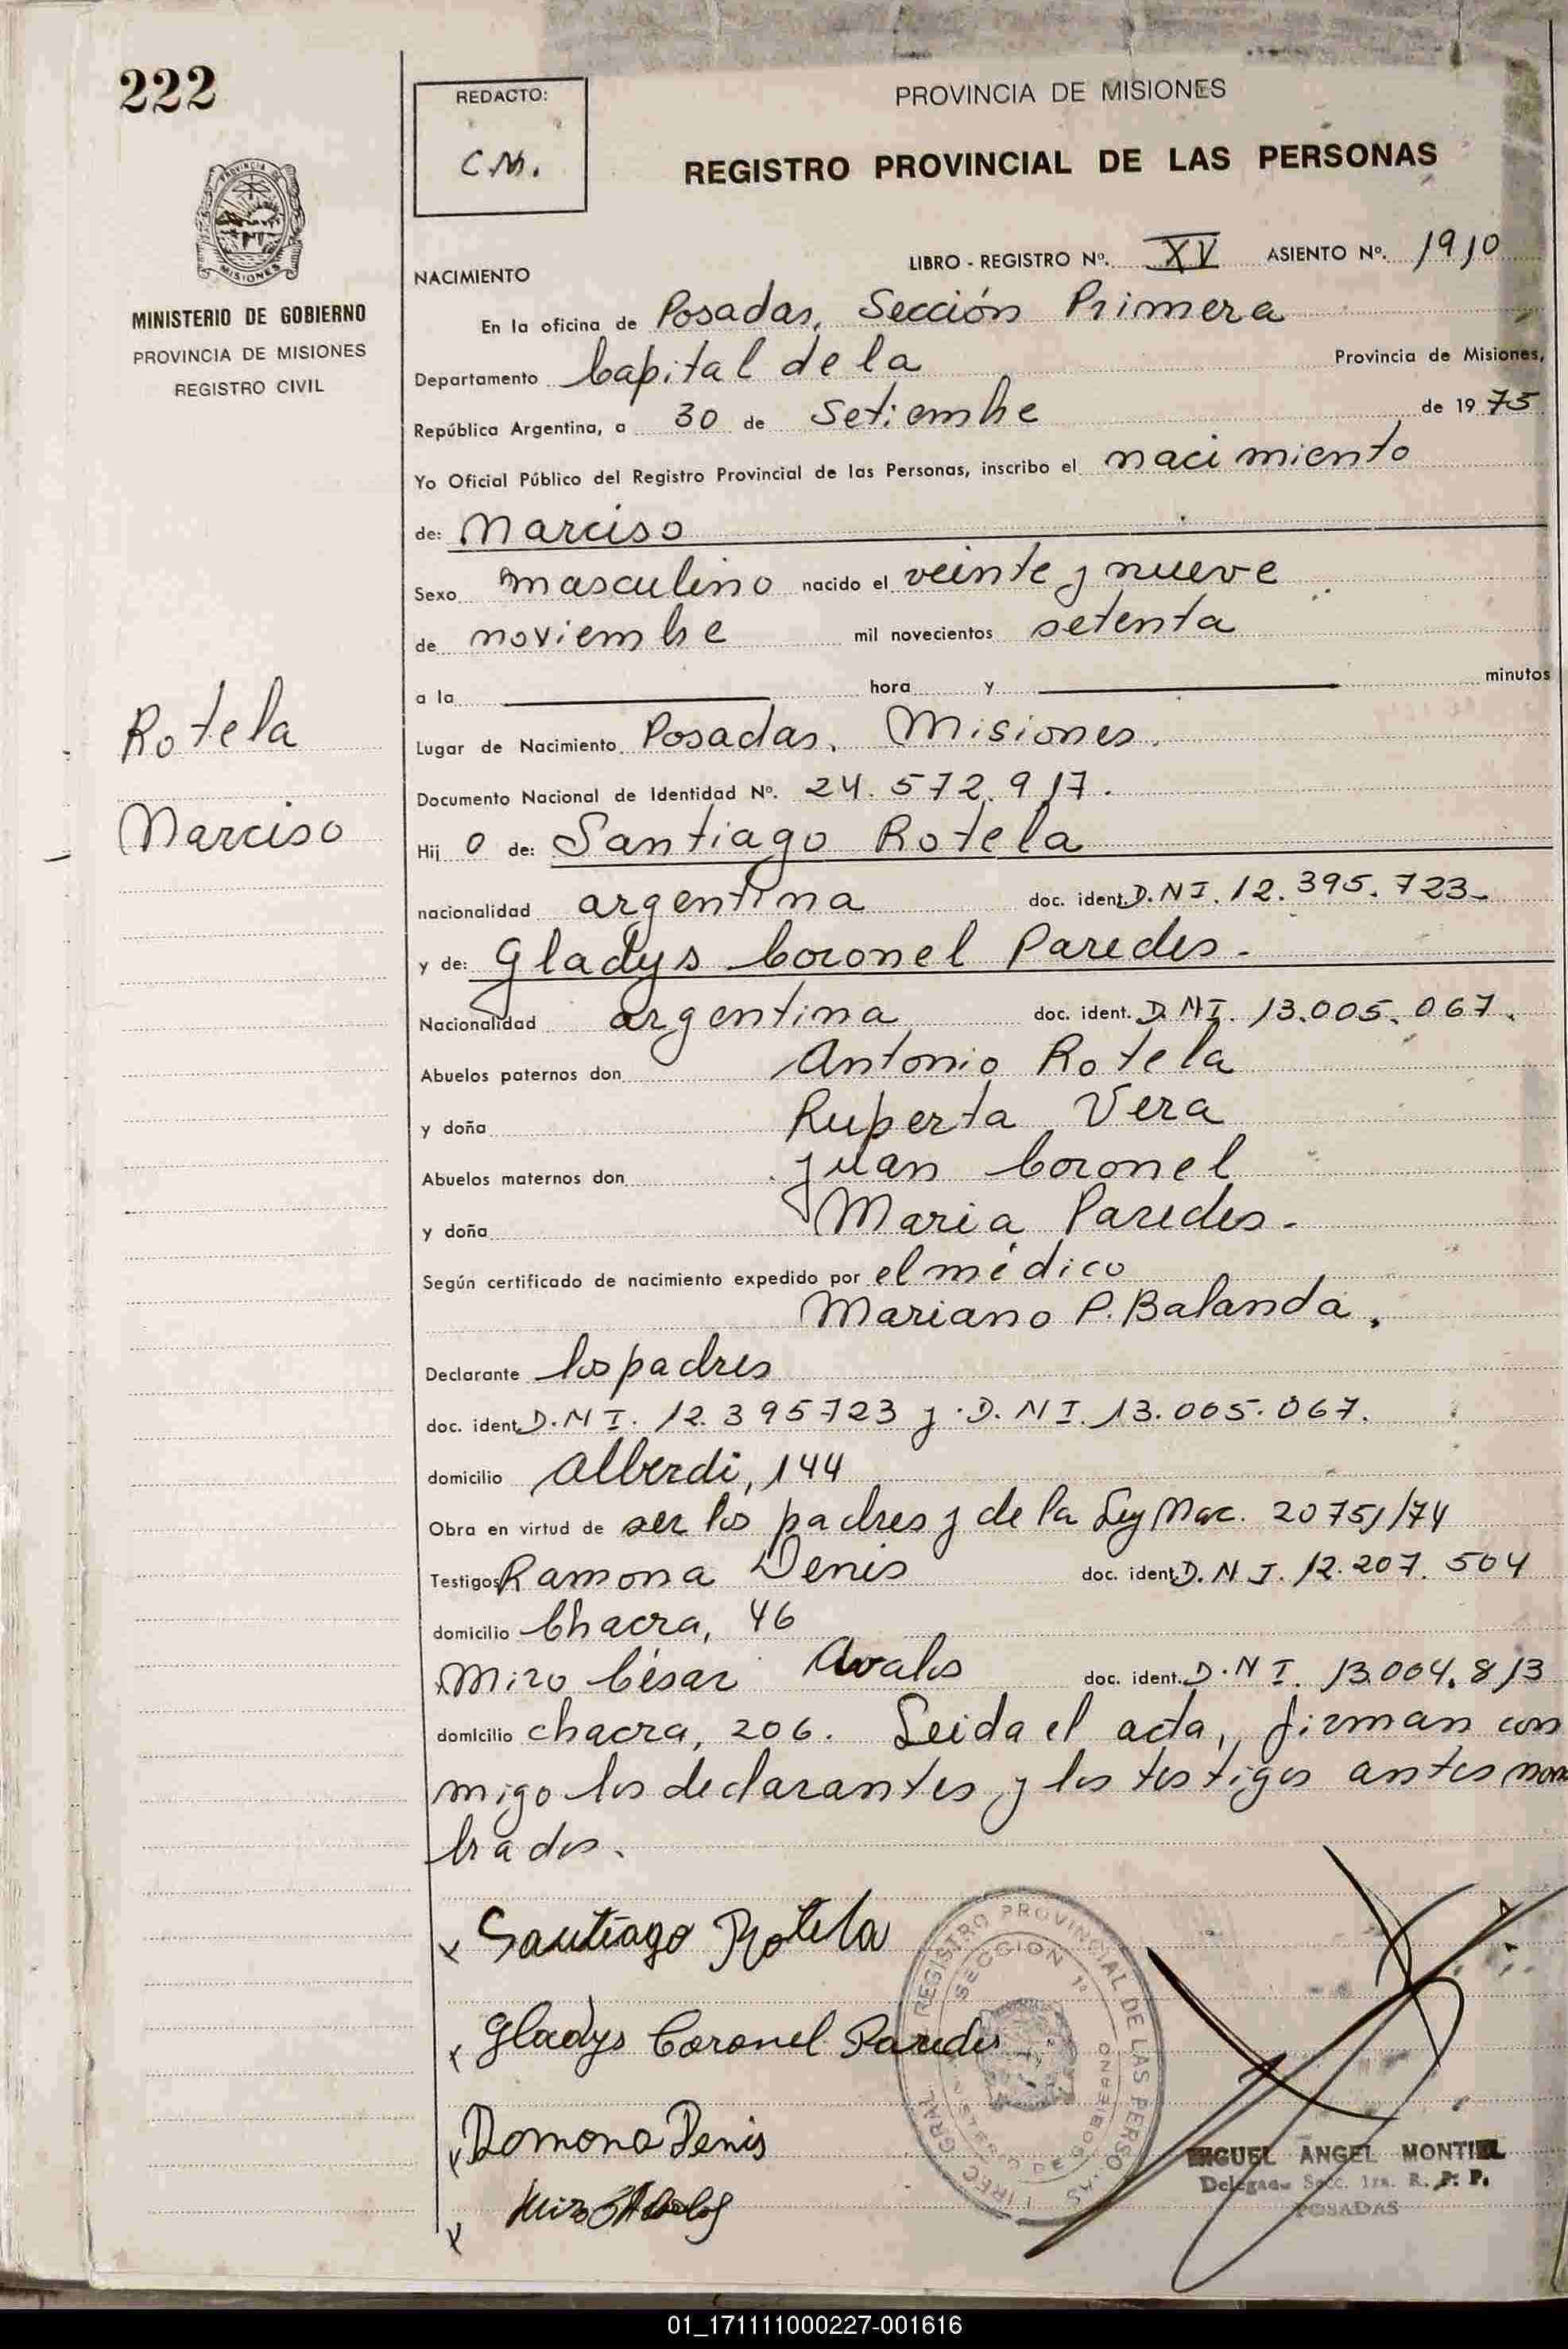 222
REDACTO:
C.M.
PROVINCIA DE MISIONES
REGISTRO PROVINCIAL DE LAS PERSONAS
MISIONES
MINISTERIO DE GOBIERNO
PROVINCIA DE MISIONES
REGISTRO CIVIL
LIBRO - REGISTRO Nº. XV ASIENTO Nº. 1910
NACIMIENTO
En la oficina de Posadas, Sección Primera
Departamento Capital de la Provincia de Misiones,
República Argentina, a 30 de Setiembre de 1975
Yo Oficial Público del Registro Provincial de las Personas, inscribo el nacimiento
de: Narciso
Sexo masculino nacido el veinte y nueve
de noviembre mil novecientos setenta
a la hora y minutos
Rotela
Lugar de Nacimiento Posadas, Misiones.
Documento Nacional de Identidad Nº. 24.572.917.
Narciso
Hij o de: Santiago Rotela
nacionalidad argentina doc. ident. D.N I. 12.395.723-
y de: Gladys Coronel Paredes -
Nacionalidad argentina doc. ident. D. NI. 13.005.067.
Abuelos paternos don Antonio Rotela
y doña Ruperta Vera
Abuelos maternos don Juan Coronel
y doña Maria Paredes -
Según certificado de nacimiento expedido por el médico
Mariano P. Balanda.
Declarante los padres
doc. ident. D.N I. 12.395723 y D. N I. 13.005.067.
domicilio Alberdi, 144
Obra en virtud de ser los padres y de la Ley Nac. 20751/74
Testigos Ramona Denis doc. ident. D. N I. 12.207.504
domicilio Chacra, 46
Miro César Avalos doc. ident. D.N I. 13.004.813
domicilio chacra, 206. Leida el acta, firman con
migo los declarantes y los testigos antes nom
brados.
x Santiago Rotela
x Gladys Coronel Paredes
x Ramona Denis
x
REGISTRO PROVINCIAL DE LAS PERSONAS
SECCION 1ª
MINISTERIO DE GOBIERNO
MIGUEL ANGEL MONTIEL
Delegado Secc. 1ra. R. P. P.
POSADAS
01_171111000227-001616